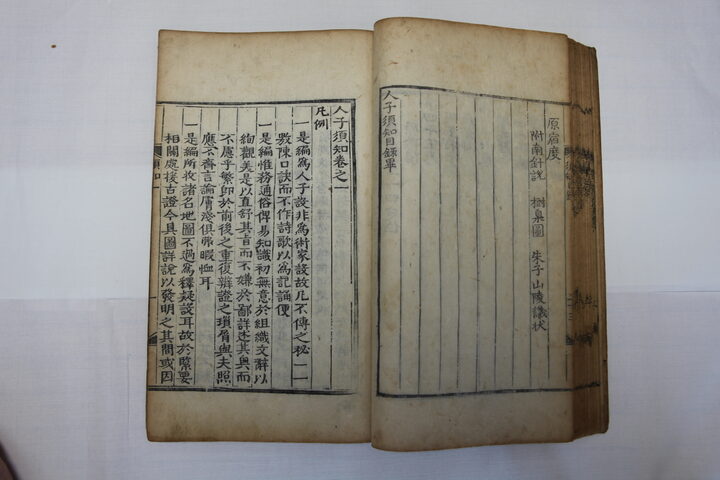 原宿度
附南針說 樹臬圖 朱子山陵議狀
人子須知目録畢
人子須知卷之一
凡例
一是編為人子設非為術家設故凡不傳之秘一一
敷陳口訣而不作詩歌以為記誦便
一是編惟務通俗俾易知識初無意於組織文辭以
絢觀美是以直舒其旨而不嫌於鄙詳述其奧而
不厭乎繁即於前後之重復辯證之瑣屑與夫照
應不齊言論膚淺俱弗暇恤耳
一是編所收諸名地圖不過為釋疑設耳故於緊要
相關處援古證今具圖詳說以發明之其間或因